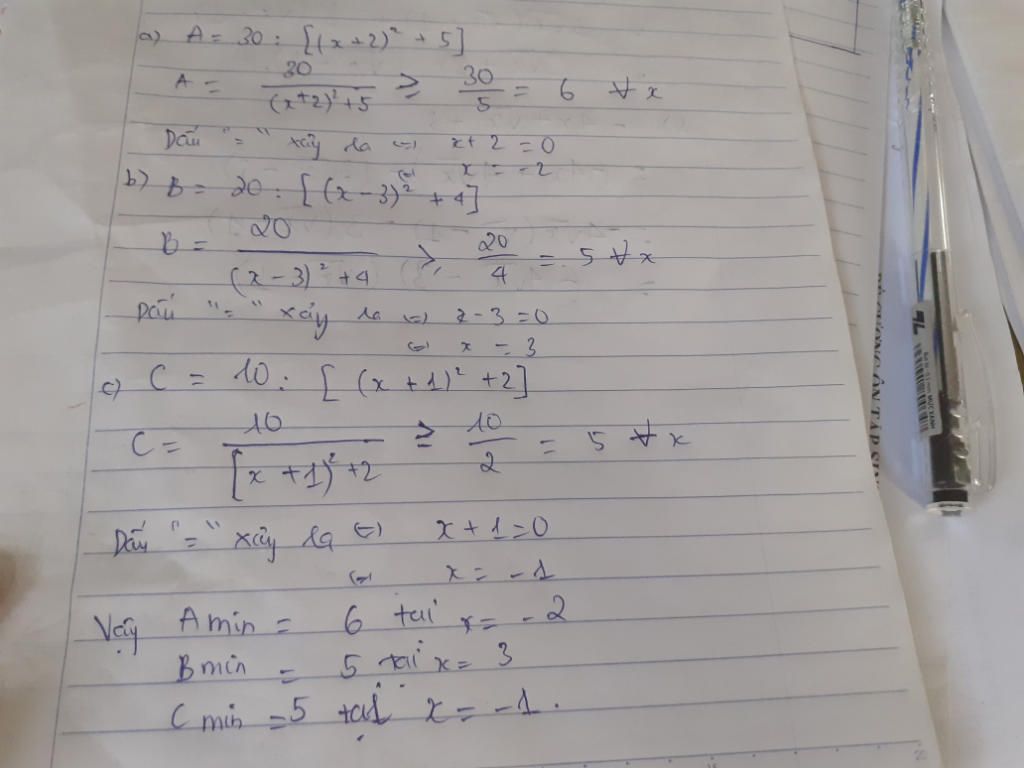 a) A = 30 : [(x+2)² + 5]
A = 30/((x+2)²+5) ≥ 30/5 = 6 ∀x
Dấu "=" xảy ra ⇔ x + 2 = 0
⇔ x = -2
b) B = 20 : [(x-3)² + 4]
B = 20/((x-3)²+4) ≥ 20/4 = 5 ∀x
Dấu "=" xảy ra ⇔ x - 3 = 0
⇔ x = 3
c) C = 10 : [(x+1)² + 2]
C = 10/([x+1)²+2) ≥ 10/2 = 5 ∀x
Dấu "=" xảy ra ⇔ x + 1 = 0
⇔ x = -1
Vậy A min = 6 tại x = -2
B min = 5 tại x = 3
C min = 5 tại x = -1.